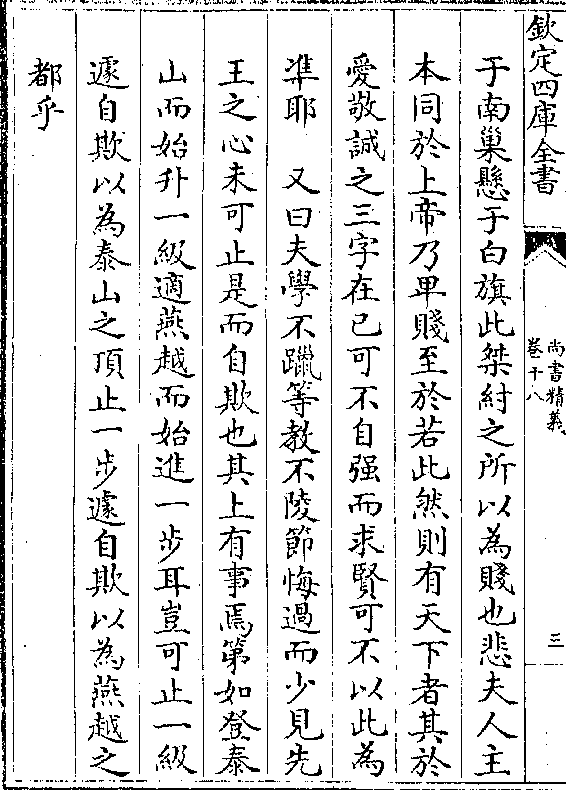 欽定四庫全書
尚書精義
卷十八
三
于南巢懸于白旗此桀紂之所以為賤也悲夫人主
本同於上帝乃卑賤至於若此然則有天下者其於
愛敬誠之三字在已可不自强而求賢可不以此為
準耶　又曰夫學不躐等教不陵節悔過而少見先
王之心未可止是而自欺也其上有事焉第如登泰
山而始升一級適燕越而始進一步耳豈可止一級
遽自欺以為泰山之頂止一步遽自欺以為燕越之
都乎